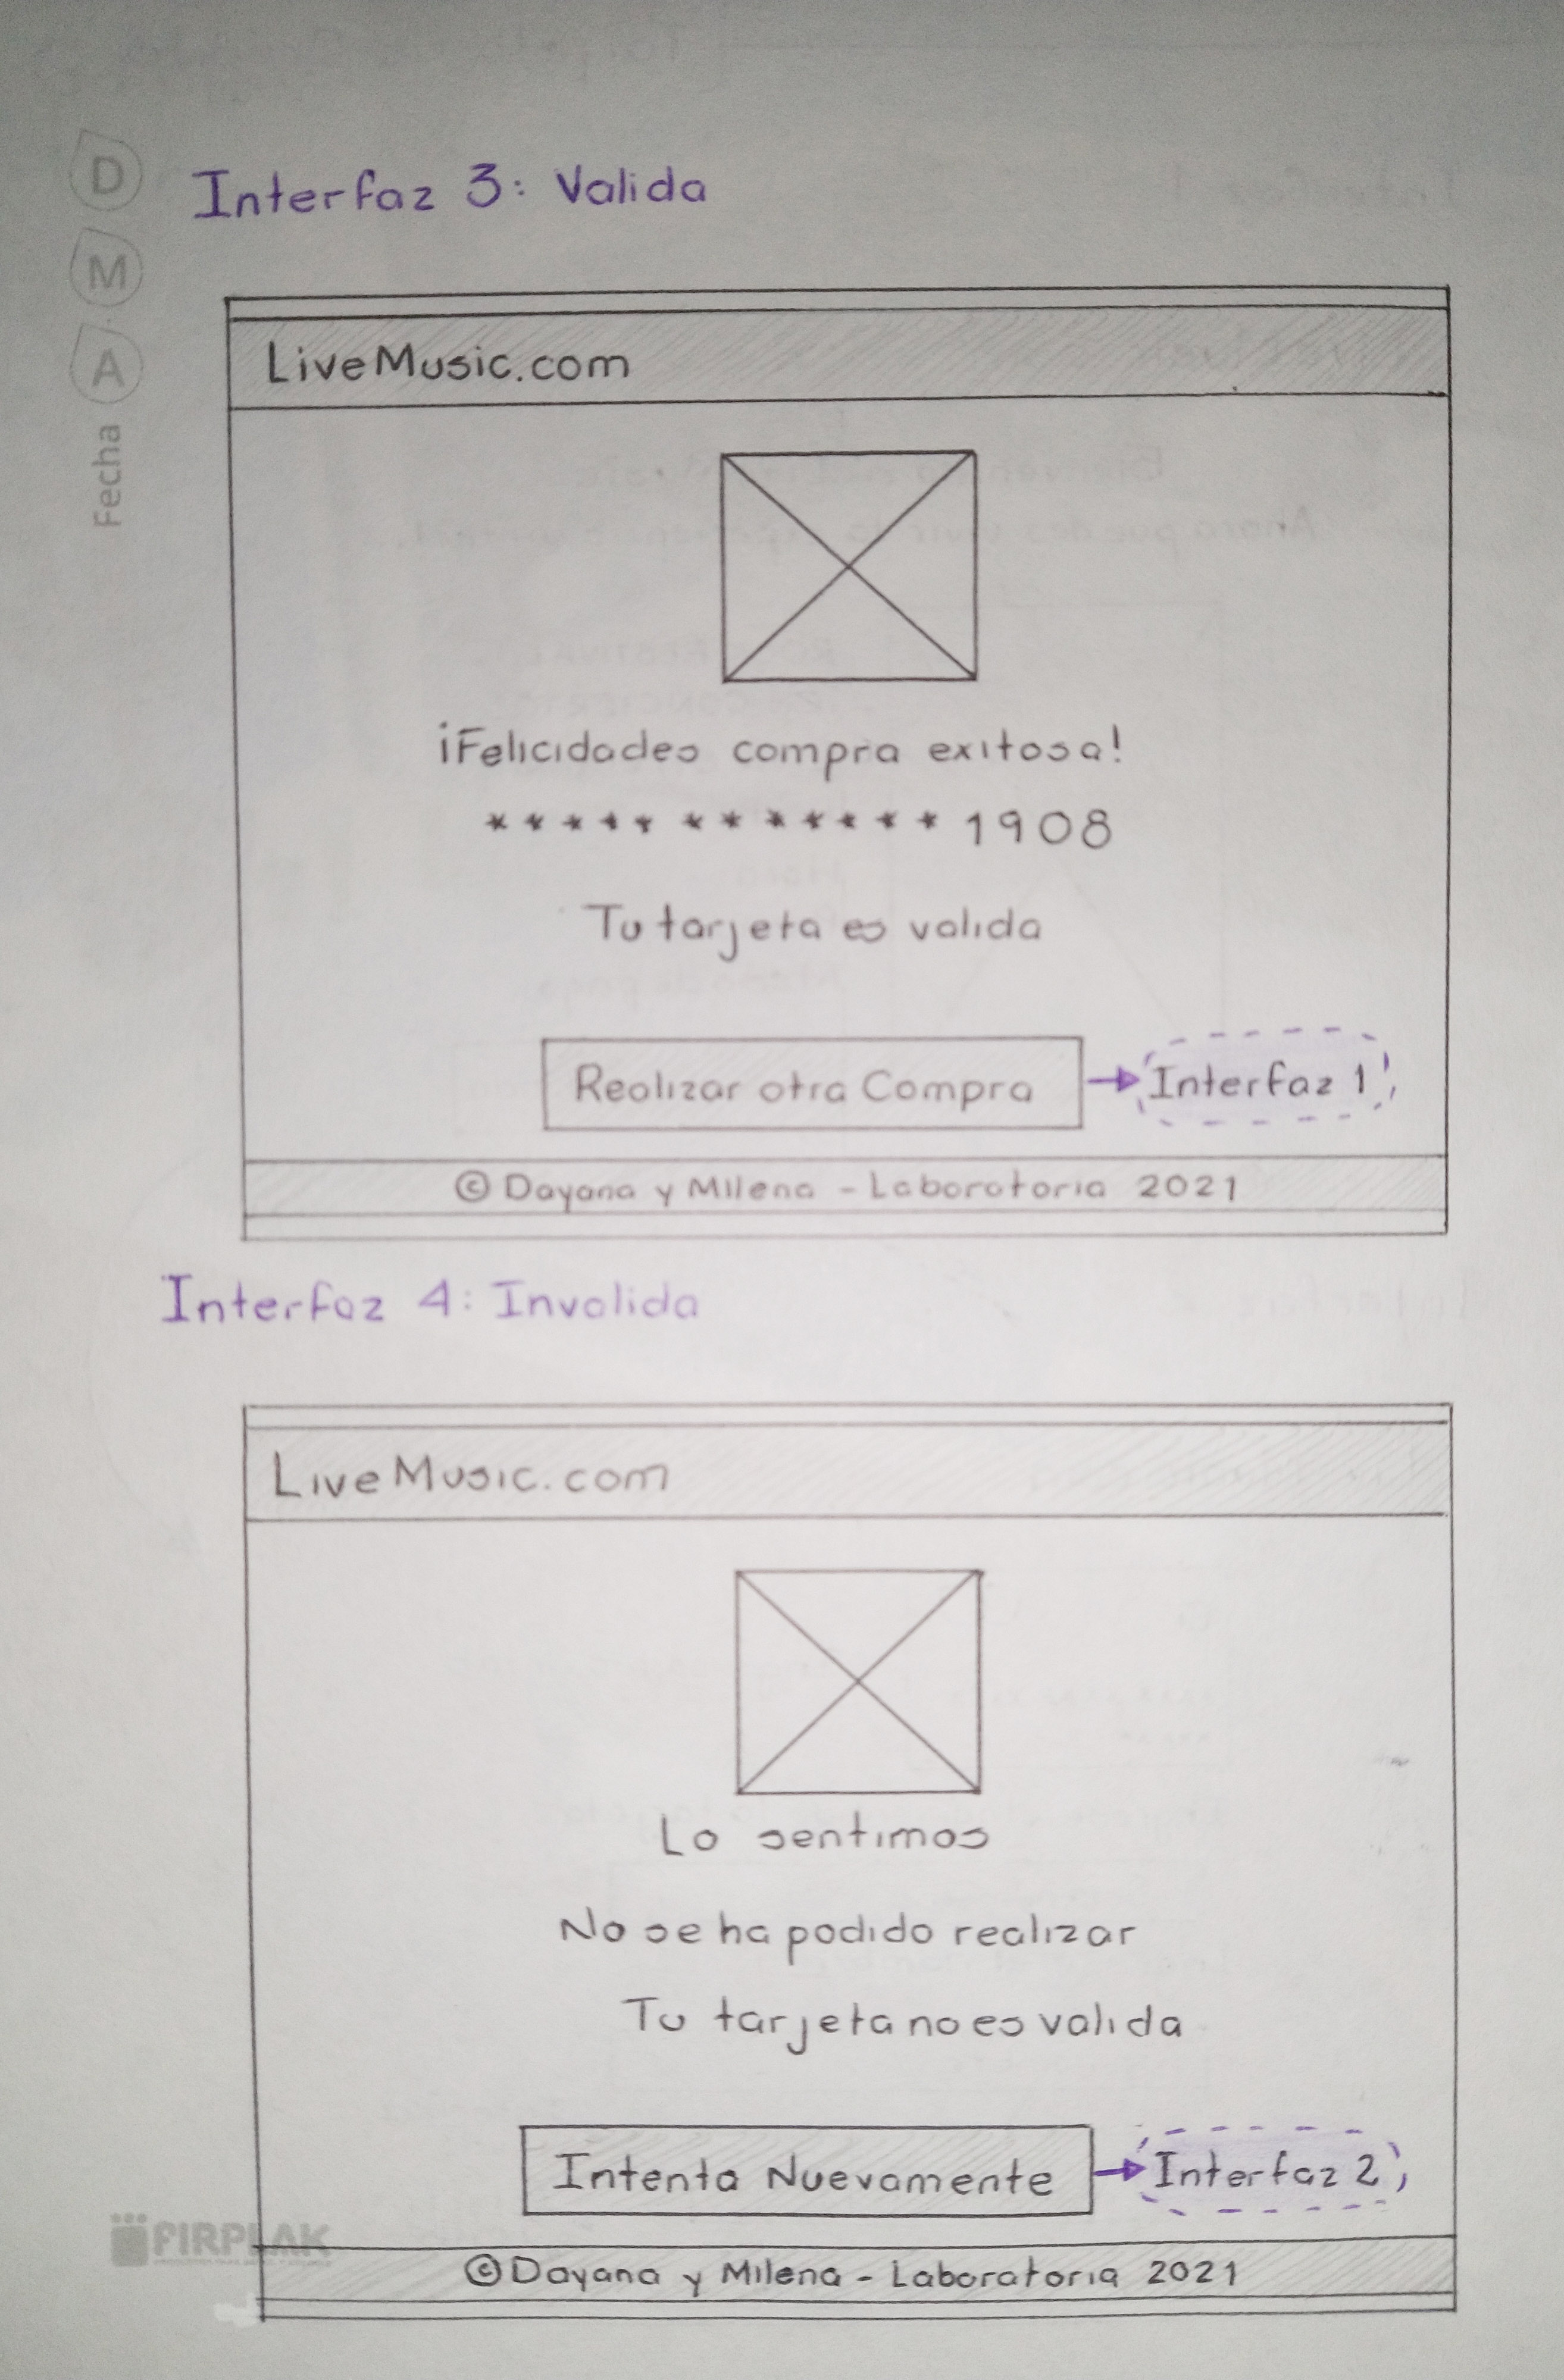 D
M
A
Fecha
Interfaz 3: Valida
LiveMusic.com
¡Felicidades compra exitosa!
************1908
Tu tarjeta es valida
Realizar otra Compra
Interfaz 1
© Dayana y Milena - Laboratoria 2021
Interfaz 4: Invalida
LiveMusic.com
Lo sentimos
No se ha podido realizar
Tu tarjeta no es valida
Intenta Nuevamente
Interfaz 2
FIRPLAK
© Dayana y Milena - Laboratoria 2021